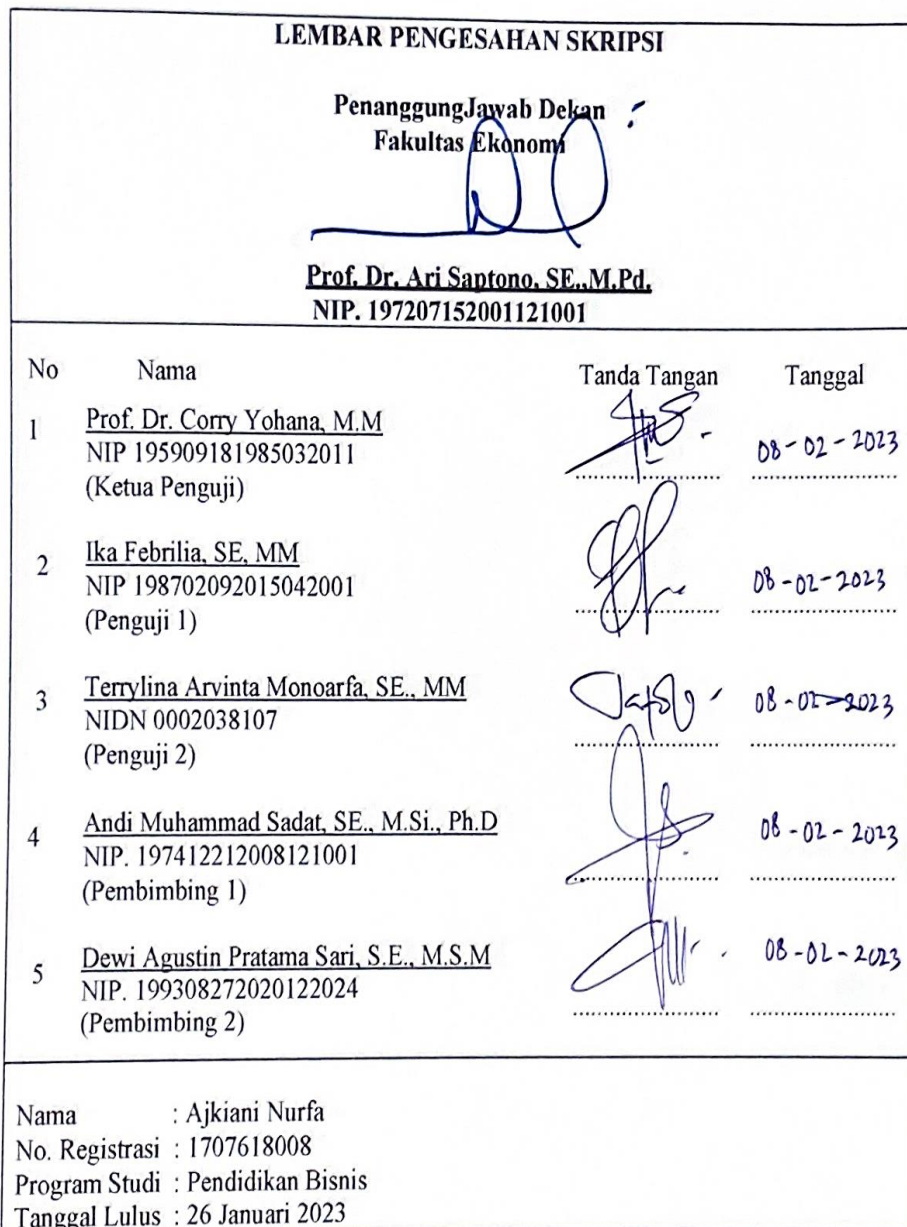 LEMBAR PENGESAHAN SKRIPSI
PenanggungJawab Dekan
Fakultas Ekonomi
Prof. Dr. Ari Saptono, SE.,M.Pd.
NIP. 197207152001121001
No Nama Tanda Tangan Tanggal
1 Prof. Dr. Corry Yohana, M.M
NIP 195909181985032011 08-02-2023
(Ketua Penguji)
2 Ika Febrilia, SE, MM
NIP 198702092015042001 08-02-2023
(Penguji 1)
3 Terrylina Arvinta Monoarfa, SE., MM
NIDN 0002038107 08-02-2023
(Penguji 2)
4 Andi Muhammad Sadat, SE., M.Si., Ph.D 08-02-2023
NIP. 197412212008121001
(Pembimbing 1)
5 Dewi Agustin Pratama Sari, S.E., M.S.M 08-02-2023
NIP. 199308272020122024
(Pembimbing 2)
Nama : Ajkiani Nurfa
No. Registrasi : 1707618008
Program Studi : Pendidikan Bisnis
Tanggal Lulus : 26 Januari 2023